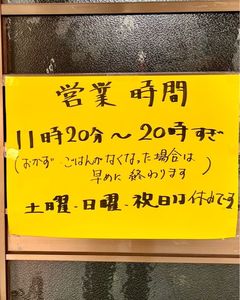 営業時間
11時20分～20時すぎ
(おかず・ごはんがなくなった場合は
早めに終わります)
土曜・日曜・祝日は休みです